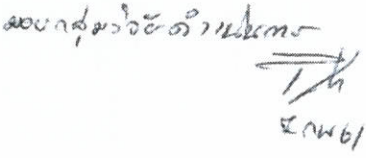 มอบกลุ่มวิจัยดำเนินการ
๕ กพ 61